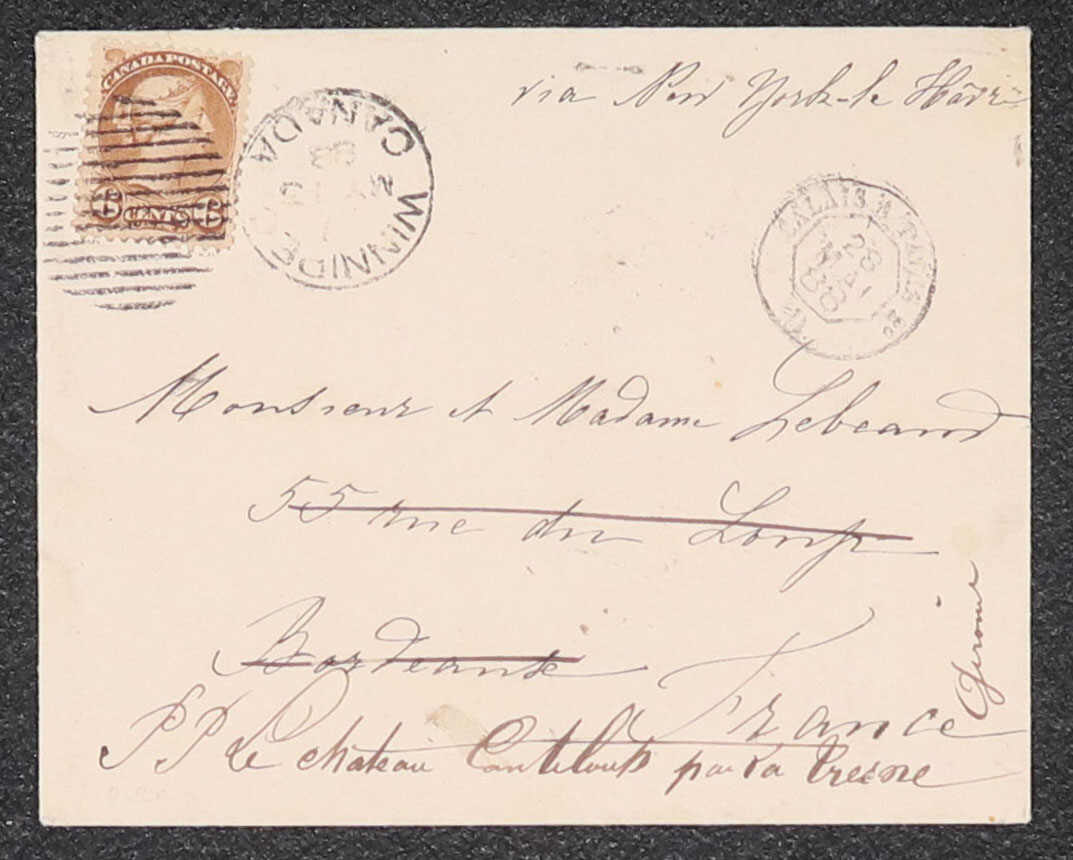 via New York-le Hâvre
CANADA POSTAGE
6 CENTS 6
WINNIPEG
CANADA
CALAIS A PARIS
28
88
Monsieur et Madame Lebeaud
55 rue du Loup
Bordeaux
France
Gironde
PP Le chateau Canteloup par La Tresne